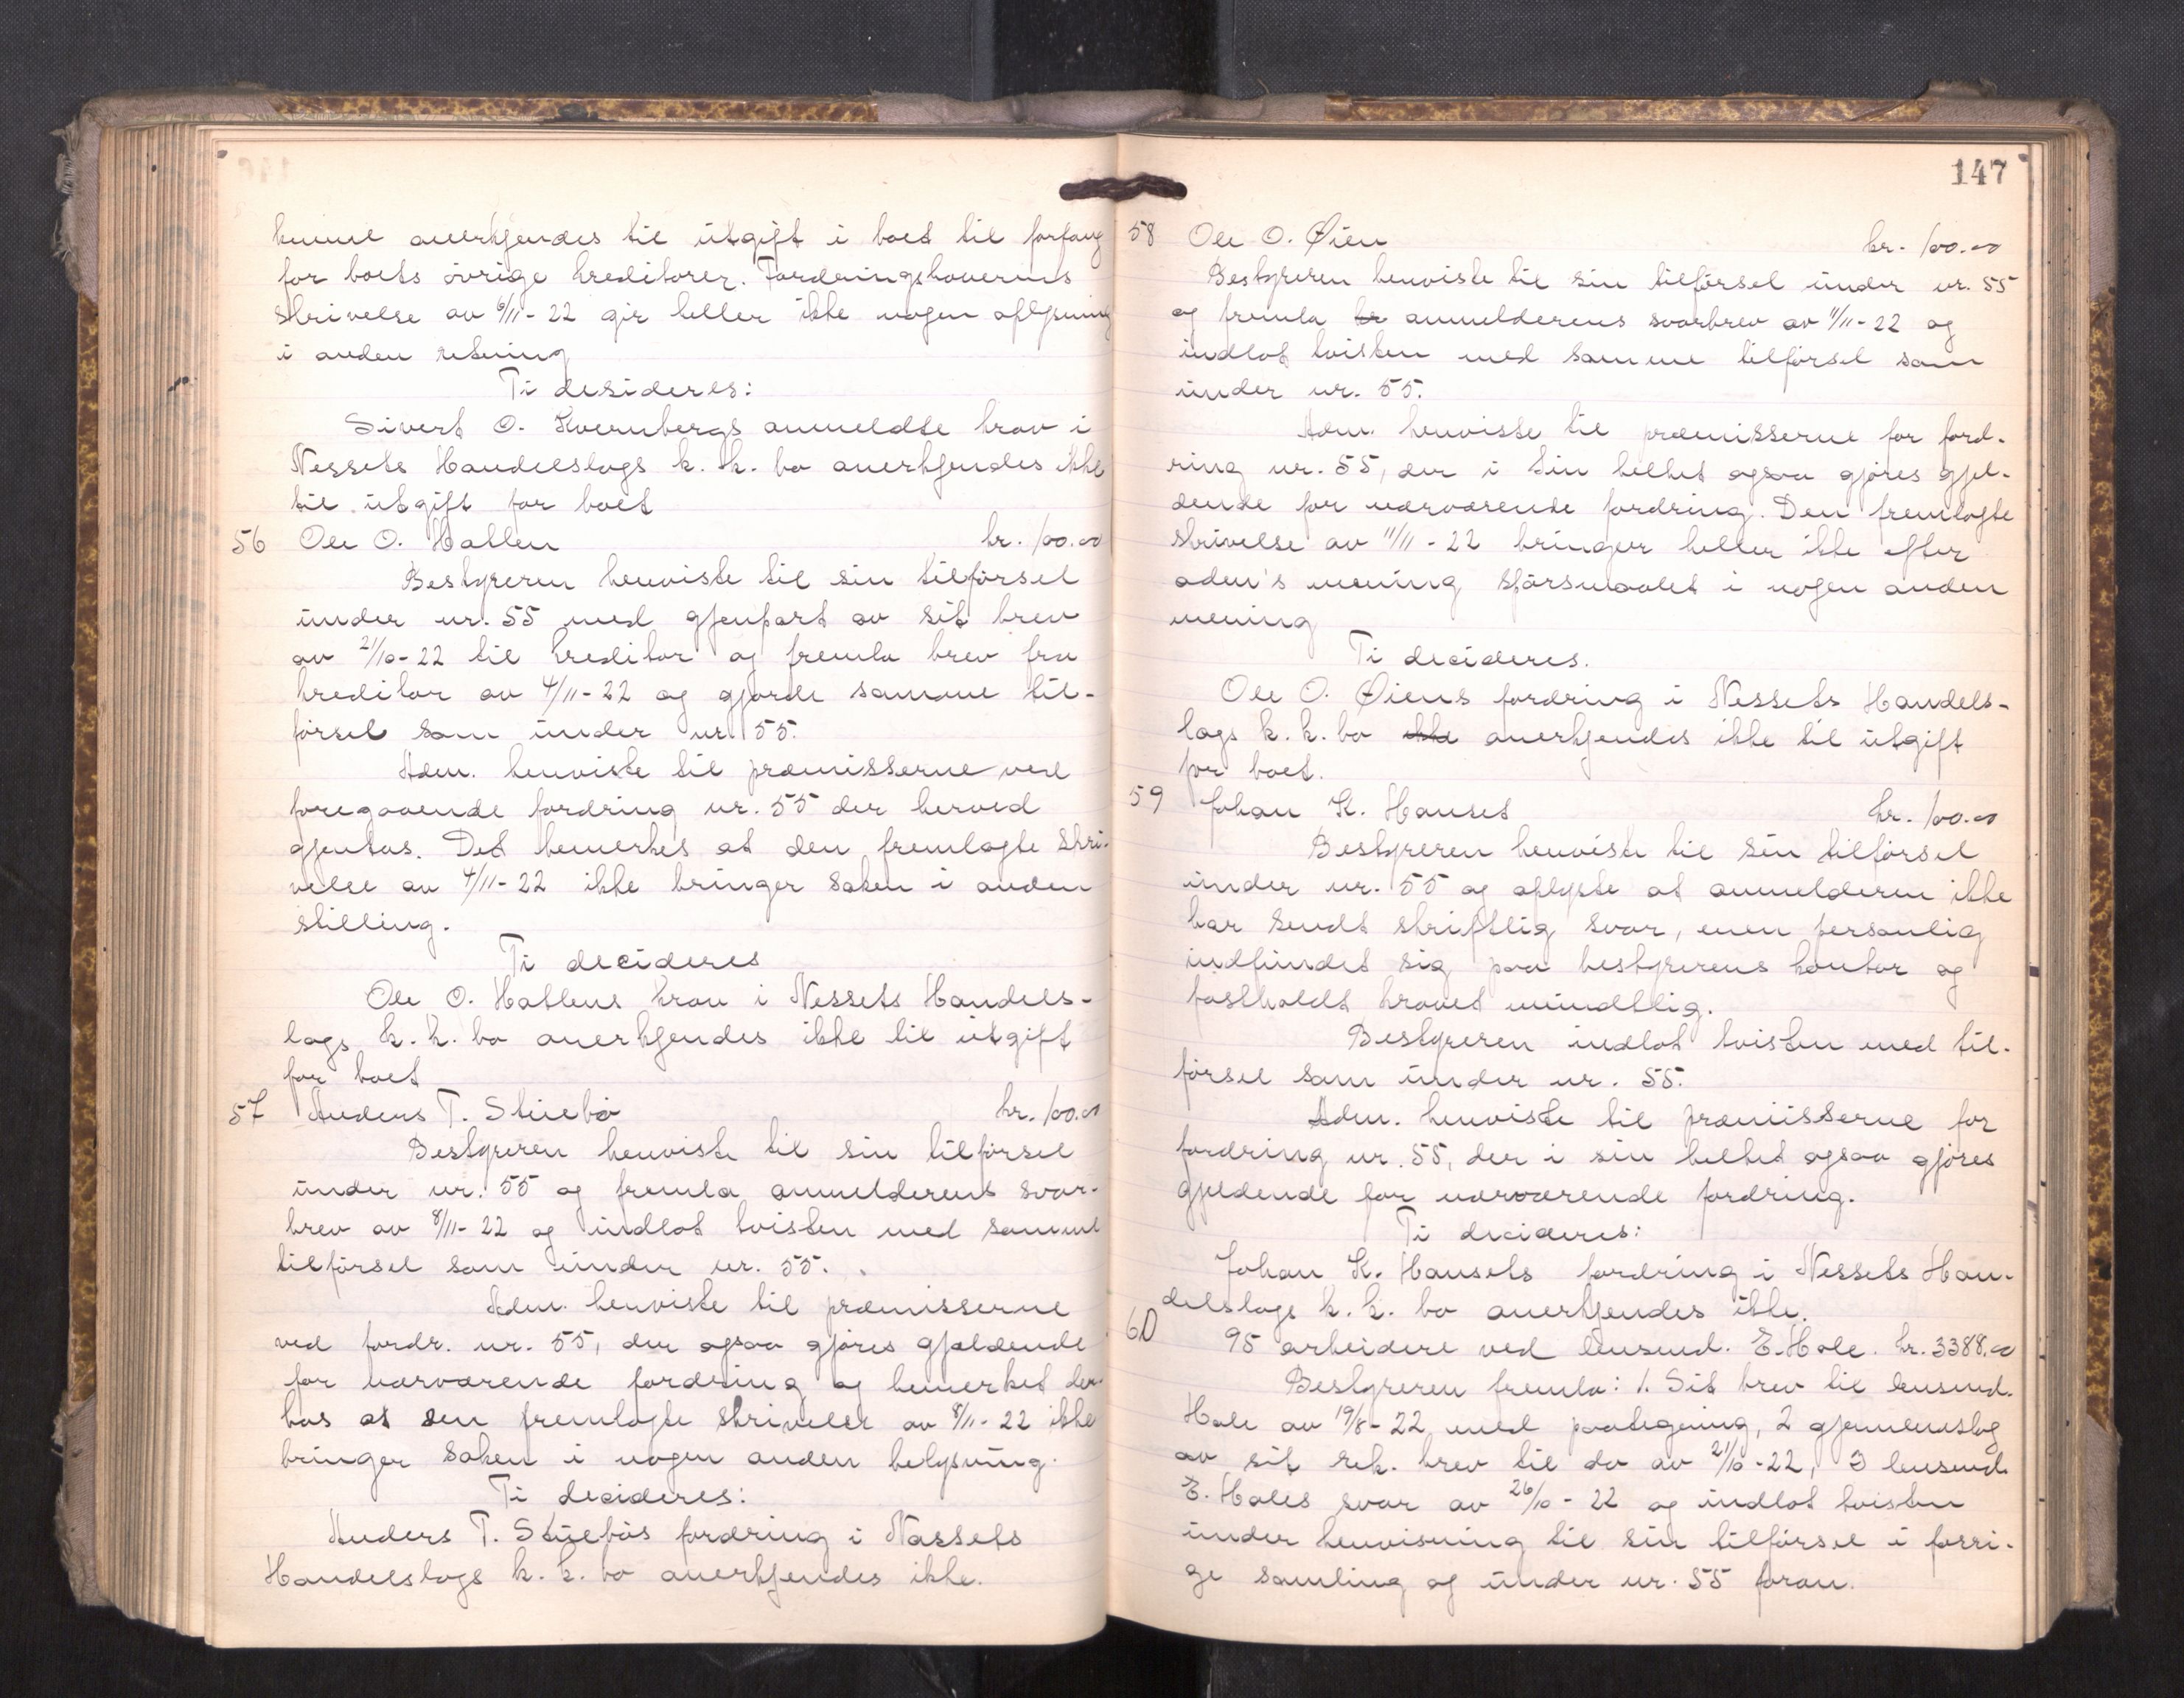 kunne anerkjendes til utgift i boet til forfang
for boets övrige kreditorer. Fordringshaverens
skrivelse av 6/11-22 gir heller ikke nogen oplysning
i anden retning
Ti desideres:
Sivert O. Kvernbergs anmeldte krav i
Nessets Handelslags k. k. bo anerkjendes ikke
til utgift for boet
56 Ole O. Hatlen kr. 100.00
Bestyreren henviste til sin tilförsel
under nr. 55 med gjenpart av sit brev
av 21/10-22 til kreditor og fremla brev fra
kreditor av 4/11-22 og gjorde samme til-
försel som under nr. 55.
Adm. henviste til præmisserne ved
foregaaende fordring nr. 55 der herved
gjentas. Det bemerkes at den fremlagte skri-
velse av 4/11-22 ikke bringer saken i anden
stilling.
Ti decideres
Ole O. Hatlens krav i Nessets Handels-
lags k. k. bo anerkjendes ikke til utgift
for boet
57 Anders T. Stuebö kr. 100.00
Bestyreren henviste til sin tilförsel
under nr. 55 og fremla anmelderens svar-
brev av 8/11-22 og indlot tvisten med samme
tilförsel som under nr. 55.
Adm. henviste til præmisserne
ved fordr. nr. 55, der ogsaa gjöres gjældende
for nærværende fordring og bemerket der-
hos at den fremlagte skrivelse av 8/11-22 ikke
bringer saken i nogen anden belysning.
Ti decideres:
Anders T. Stuebös fordring i Næssets
Handelslags k. k. bo anerkjendes ikke.
147
58 Ole O. Øien kr. 100.00
Bestyreren henviste til sin tilförsel under nr. 55
og fremla br anmelderens svarbrev av 11/11-22 og
indlot tvisten med samme tilförsel som
under nr. 55.
Adm. henviste til præmisserne for ford-
ring nr. 55, der i sin helhet ogsaa gjöres gjel-
dende for nærværende fordring. Den fremlagte
skrivelse av 11/11-22 bringer heller ikke efter
adm's mening spörsmaalet i nogen anden
mening
Ti decideres.
Ole O. Øiens fordring i Nessets Handels-
lags k. k. bo ikke anerkjendes ikke til utgift
for boet.
59 Johan K. Hanset kr. 100.00
Bestyreren henviste til sin tilförsel
under nr. 55 og oplyste at anmelderen ikke
har sendt skriftlig svar, men personlig
indfundet sig paa bestyrerens kontor og
fastholdt kravet mundtlig.
Bestyreren indlot tvisten med til-
försel som under nr. 55.
Adm. henviste til præmisserne for
fordring nr. 55, der i sin helhet ogsaa gjöres
gjeldende for nærværende fordring.
Ti decideres:
Johan K. Hansets fordring i Nessets Han-
delslags k. k. bo anerkjendes ikke.
60 95 arbeidere ved lensmd. E. Hole. kr. 3388.00
Bestyreren fremla: 1. Sit brev til lensmd.
Hole av 19/8-22 med paategning, 2 gjennemslag
av sit rek. brev til do av 21/10-22, 3 lensmd.
E. Holes svar av 26/10-22 og indlot tvisten
under henvisning til sin tilförsel i forri-
ge samling og under nr. 55 foran.